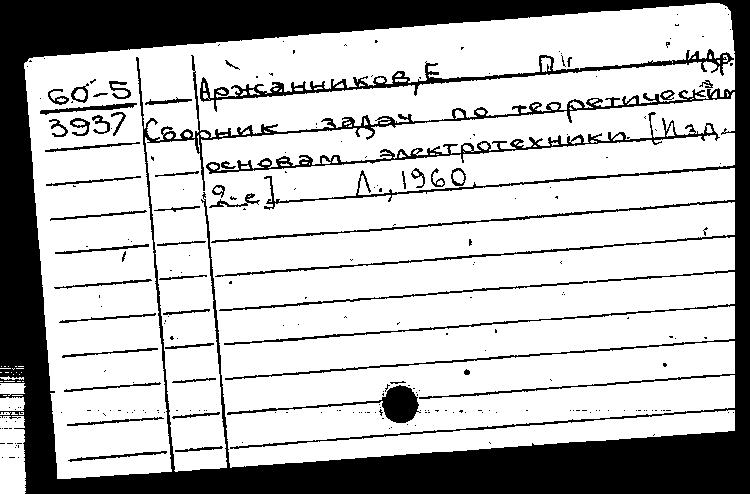 60-5
3937
Аржанников, Е П. и др.
Сборник задач по теоретическим
основам электротехники [Изд.
2-е]. Л., 1960.